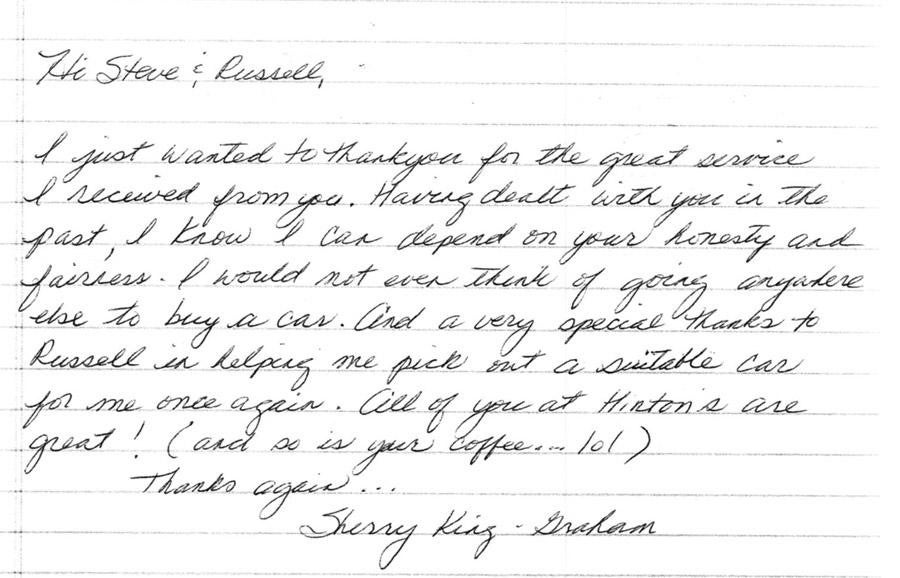 Hi Steve & Russell,
I just wanted to thankyou for the great service
I received from you. Having dealt with you in the
past, I know I can depend on your honesty and
fairness. I would not even think of going anywhere
else to buy a car. And a very special thanks to
Russell in helping me pick out a suitable car
for me once again. All of you at Hinton's are
great! (and so is your coffee... lol)
Thanks again...
Sherry King-Graham